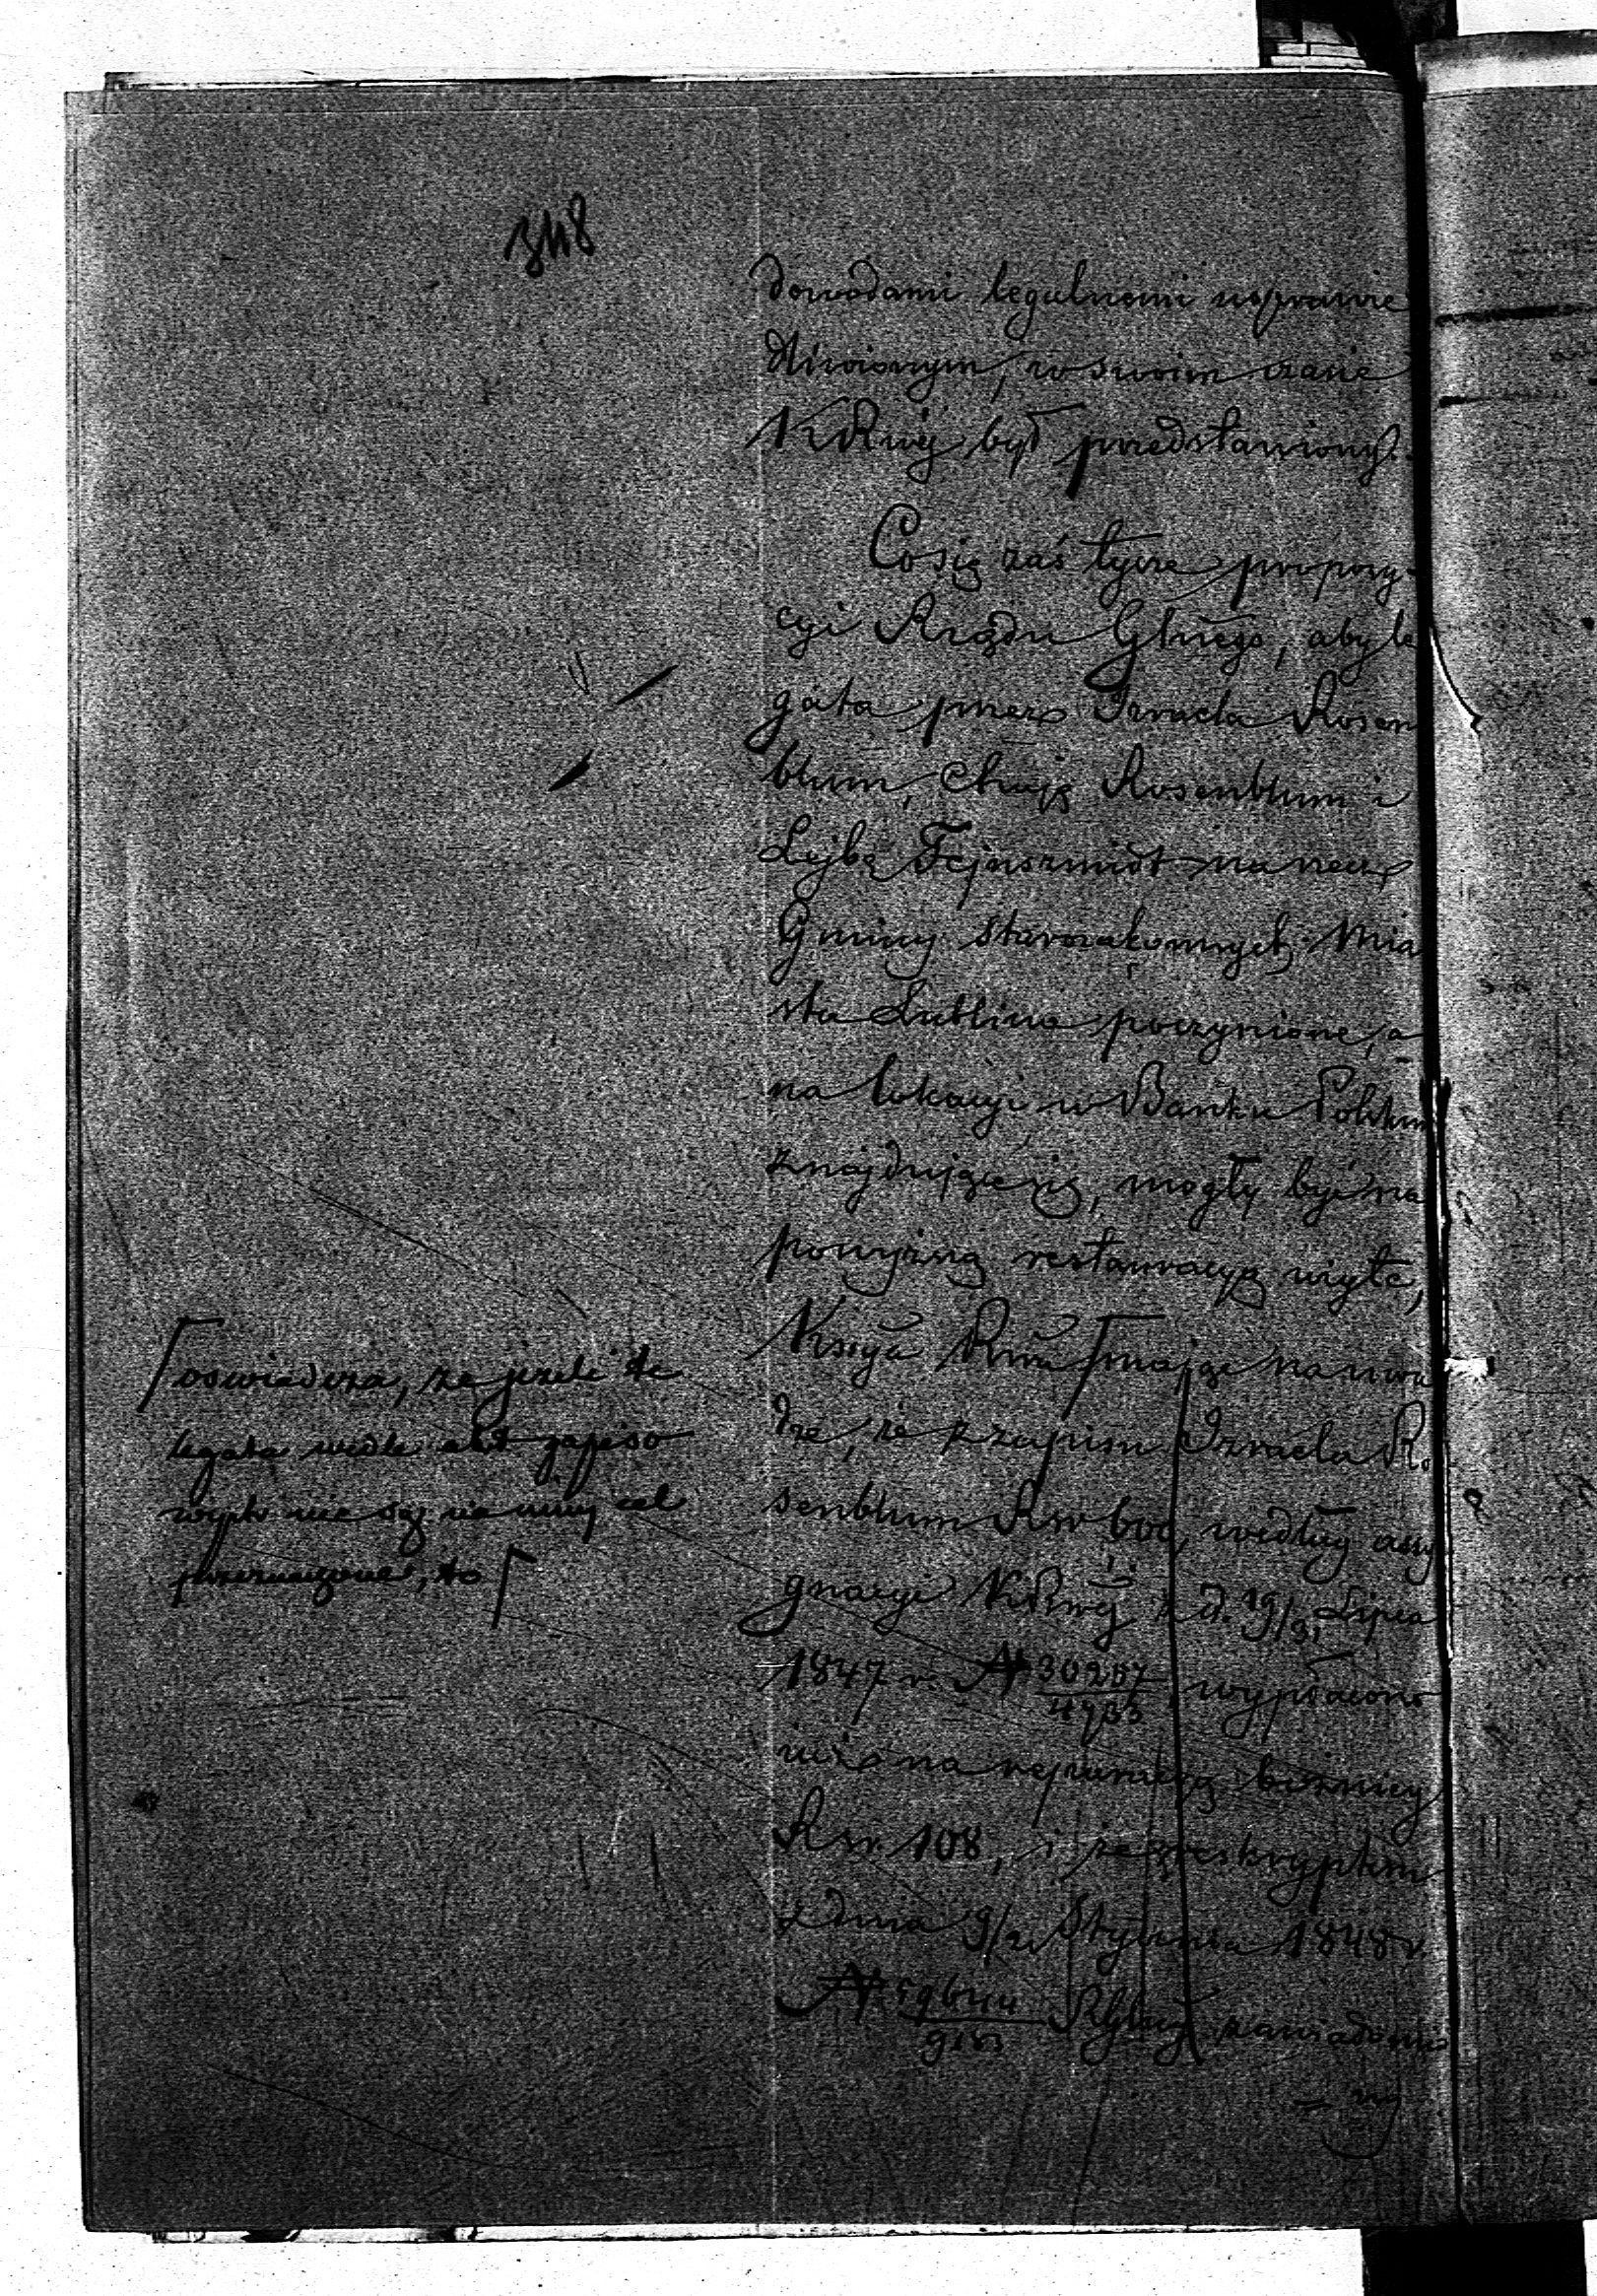 348
dowodami legalnemi usprawie
dliwionym, w swoim czasie
KRwéj był przedstawiony.
Co się zaś tycze propozy-
cyi Rządu Głneego, aby le
gata przez Izraela Rosen
blum, Chaję Rosenblum i
Lejbę Fejnszmidt na rzecz
Gminy Starozakonnych Mia
sta Lublina poczynione, a
na lokacyi w Banku Polskim
znajdujące się, mogły być na
powyższą restauracyą użyte,
Ksiya Rwa ⌈ mając na uwa
dze, że z zapisu Izraela Ro
senblum Rsr 600, według assy
gnacyi KRwéj z d. 19/31 Lipca
1847 r. N 30257/4933 wypłacono
już na reperacyą bóżnicy
Rsr. 108, i że reskryptem
z dnia 9/21 Stycznia 1848 r.
N Rząd zawiadomi
⌈ oświadcza, że jeżeli te
legata wedle zapiso
wych nie są na inny cel
przeznaczone, to ⌈